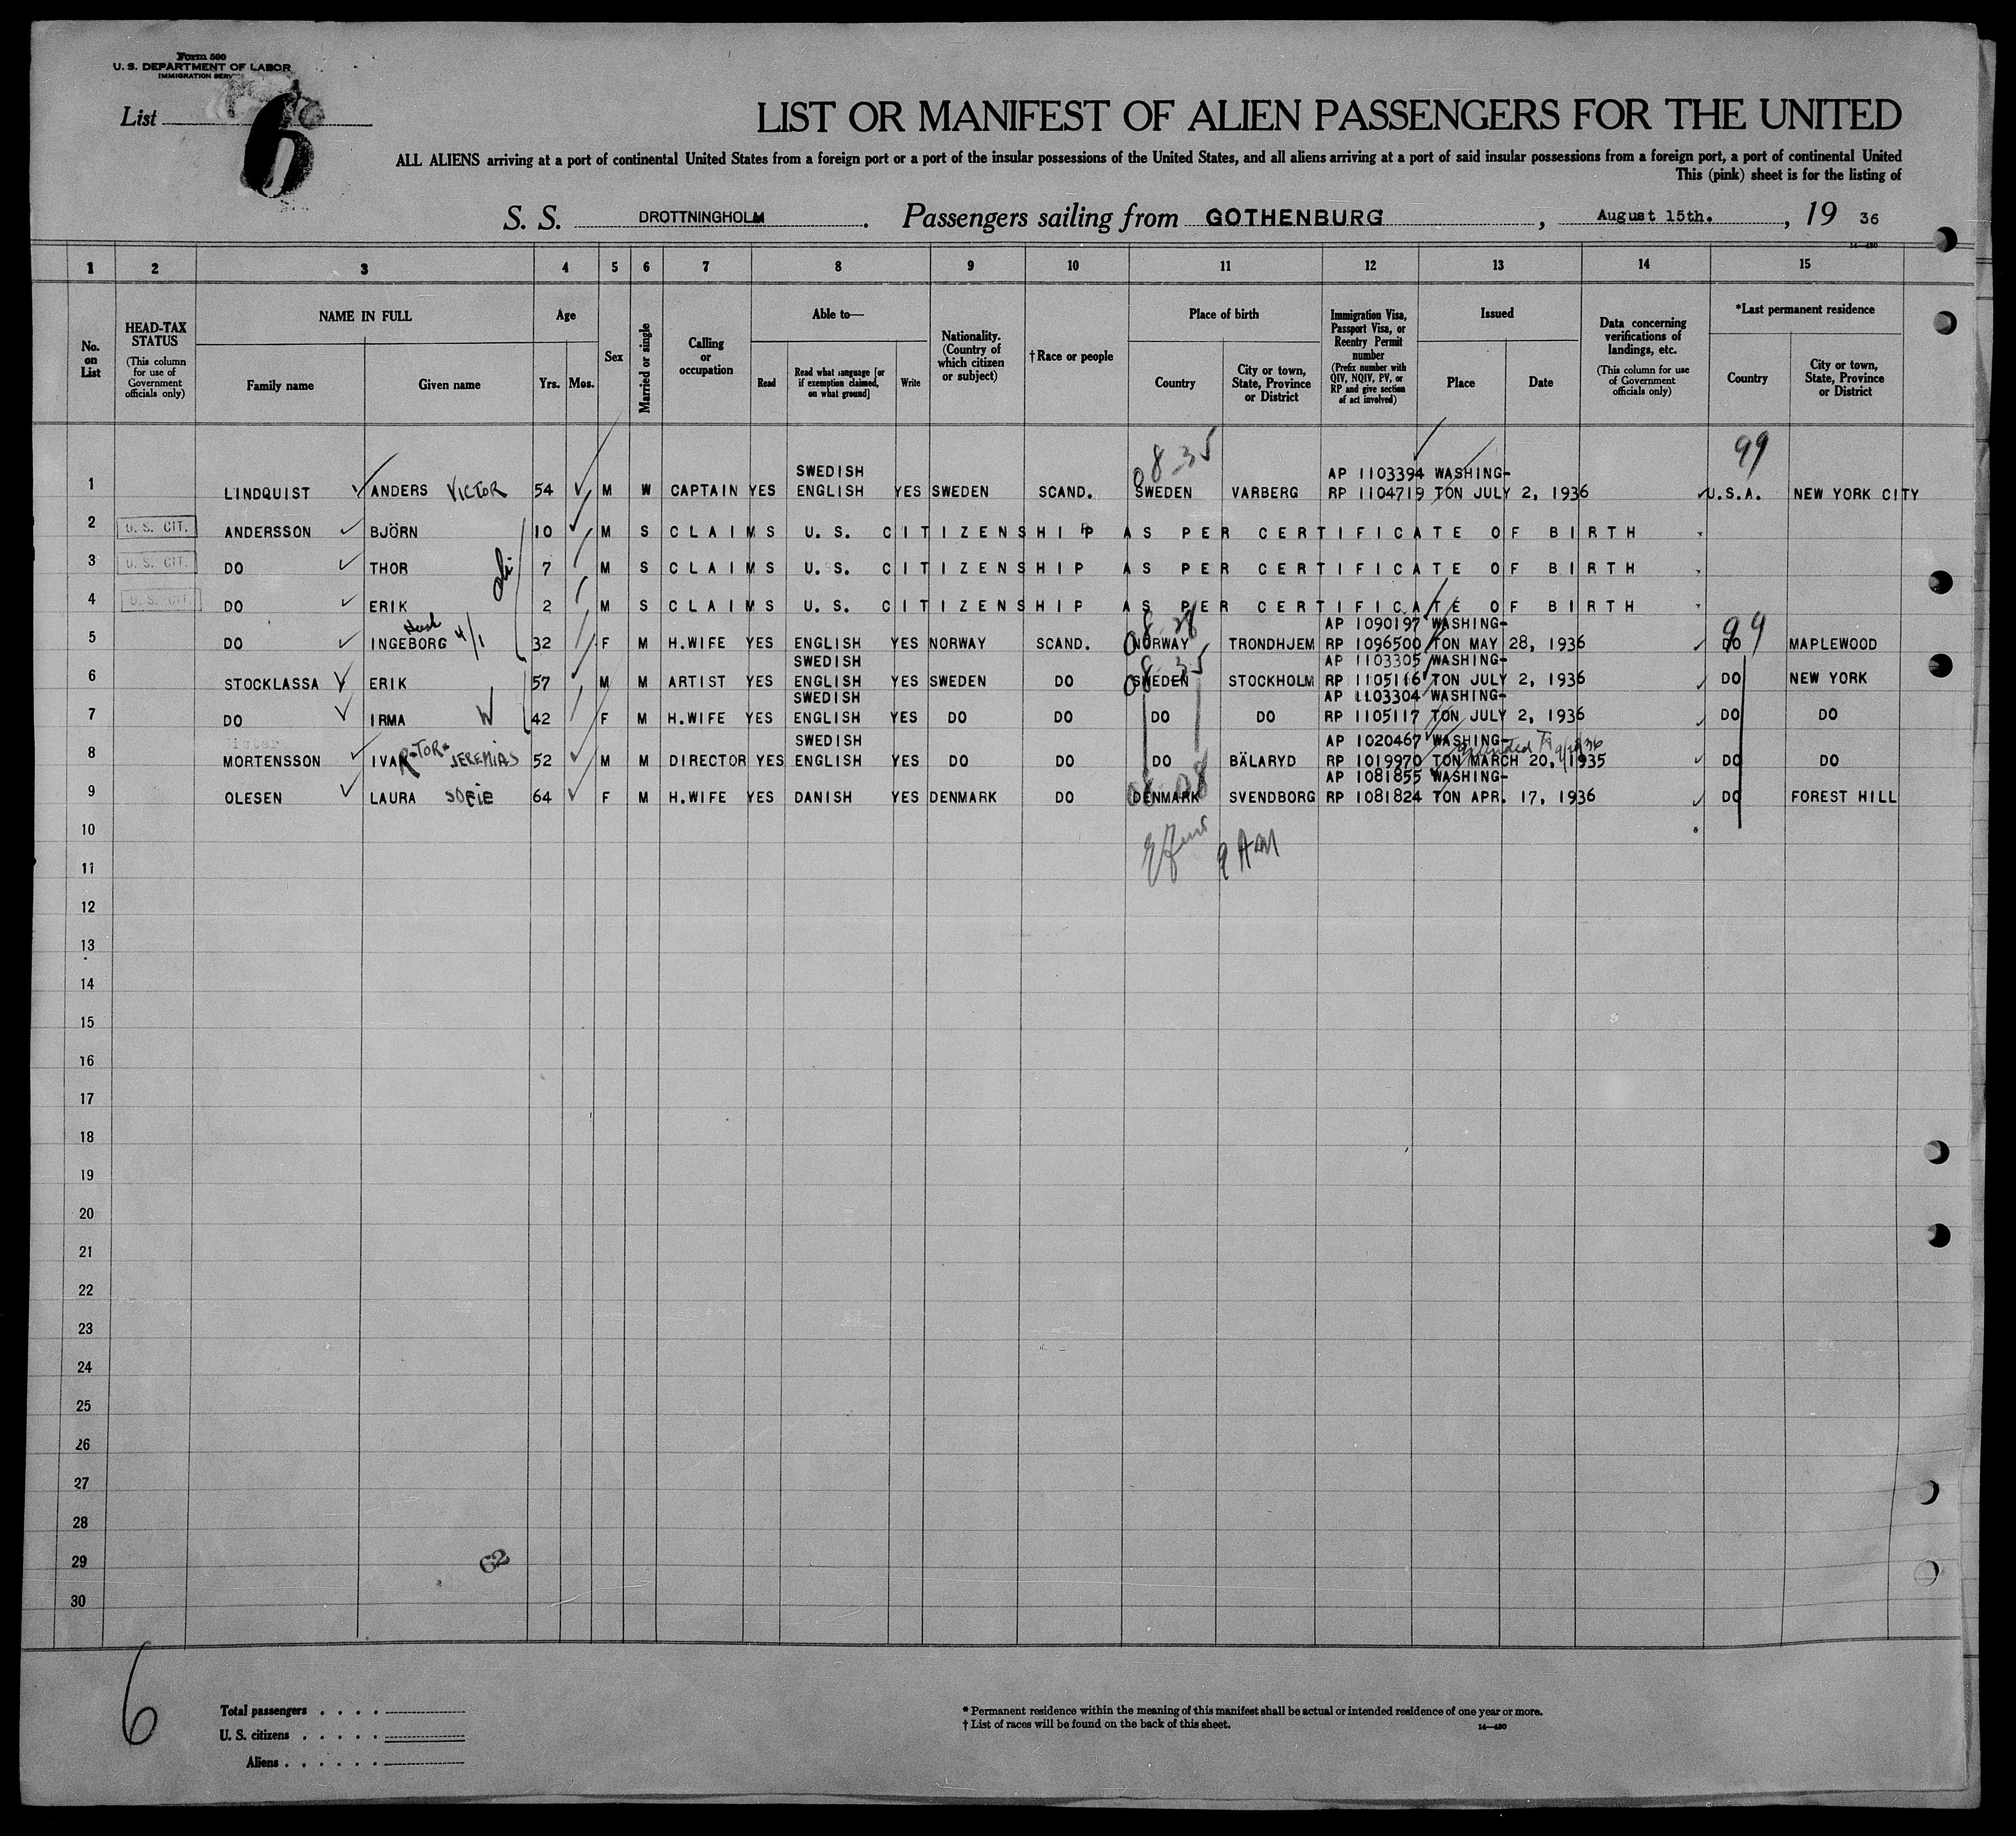 Form 500
U. S. DEPARTMENT OF LABOR
IMMIGRATION SERV
List 6
LIST OR MANIFEST OF ALIEN PASSENGERS FOR THE UNITED
ALL ALIENS arriving at a port of continental United States from a foreign port or a port of the insular possessions of the United States, and all aliens arriving at a port of said insular possessions from a foreign port, a port of continental United
This (pink) sheet is for the listing of
S. S. DROTTNINGHOLM. Passengers sailing from GOTHENBURG, August 15th., 19 36
14—480
1 2 3 4 5 6 7 8 9 10 11 12 13 14 15
No. on List
HEAD-TAX STATUS
(This column for use of Government officials only)
NAME IN FULL
Family name
Given name
Age
Yrs. Mos.
Sex
Married or single
Calling or occupation
Able to—
Read
Read what language [or if exemption claimed, on what ground]
Write
Nationality. (Country of which citizen or subject)
†Race or people
Place of birth
Country
City or town, State, Province or District
Immigration Visa, Passport Visa, or Reentry Permit number
(Prefix number with QIV, NQIV, PV, or RP and give section of act involved)
Issued
Place
Date
Data concerning verifications of landings, etc.
(This column for use of Government officials only)
*Last permanent residence
Country
City or town, State, Province or District
08-35 99
SWEDISH AP 1103394 WASHING-
1 LINDQUIST ANDERS VICTOR 54 M W CAPTAIN YES ENGLISH YES SWEDEN SCAND. SWEDEN VARBERG RP 1104719 TON JULY 2, 1936 U.S.A. NEW YORK CITY
2 U. S. CIT. ANDERSSON BJÖRN 10 M S CLAIMS U. S. CITIZENSHIP AS PER CERTIFICATE OF BIRTH
3 U. S. CIT. DO THOR 7 M S CLAIMS U. S. CITIZENSHIP AS PER CERTIFICATE OF BIRTH
4 U. S. CIT. DO ERIK 2 M S CLAIMS U. S. CITIZENSHIP AS PER CERTIFICATE OF BIRTH
AP 1090197 WASHING-
5 DO INGEBORG 4/1 32 F M H.WIFE YES ENGLISH YES NORWAY SCAND. NORWAY TRONDHJEM RP 1096500 TON MAY 28, 1936 DO 99 MAPLEWOOD
SWEDISH 08-35 AP 1103305 WASHING-
6 STOCKLASSA ERIK 57 M M ARTIST YES ENGLISH YES SWEDEN DO SWEDEN STOCKHOLM RP 1105116 TON JULY 2, 1936 DO NEW YORK
SWEDISH AP 1103304 WASHING-
7 DO IRMA W 42 F M H.WIFE YES ENGLISH YES DO DO DO DO RP 1105117 TON JULY 2, 1936 DO DO
SWEDISH AP 1020467 WASHING-
8 MORTENSSON IVAR -TOR- JEREMIAS 52 M M DIRECTOR YES ENGLISH YES DO DO DO BÄLARYD RP 1019970 TON MARCH 20, 1935 DO DO
AP 1081855 WASHING-
9 OLESEN LAURA SOFIE 64 F M H.WIFE YES DANISH YES DENMARK DO DENMARK SVENDBORG RP 1081824 TON APR. 17, 1936 DO FOREST HILL
10
11
12
13
14
15
16
17
18
19
20
21
22
23
24
25
26
27
28
29
30
62
6
Total passengers . . . .
U. S. citizens . . . . .
Aliens . . . . . .
* Permanent residence within the meaning of this manifest shall be actual or intended residence of one year or more.
† List of races will be found on the back of this sheet.
14—480